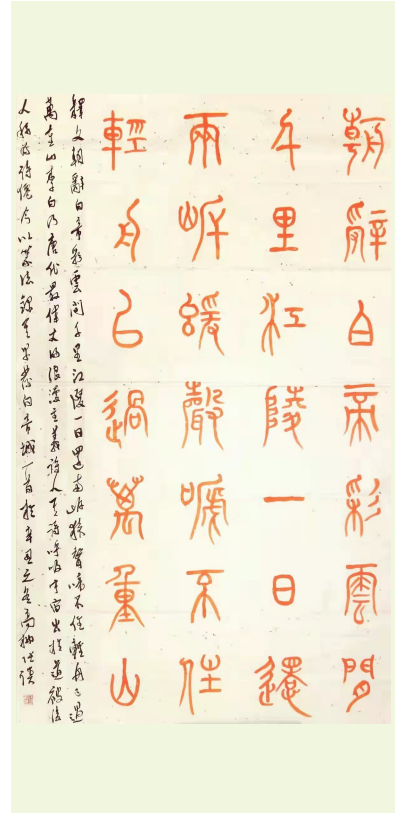 朝辭白帝彩雲間
千里江陵一日還
兩岸緩聲嗁不住
輕舟已過萬重山
釋文朝辭白帝彩雲間千里江陵一日還兩岸猿聲啼不住輕舟已過
萬重山李白乃唐代最偉大的浪漫主義詩人其詩
人稱為詩僊今以篆法錄其早發白帝城一首於辛丑之冬